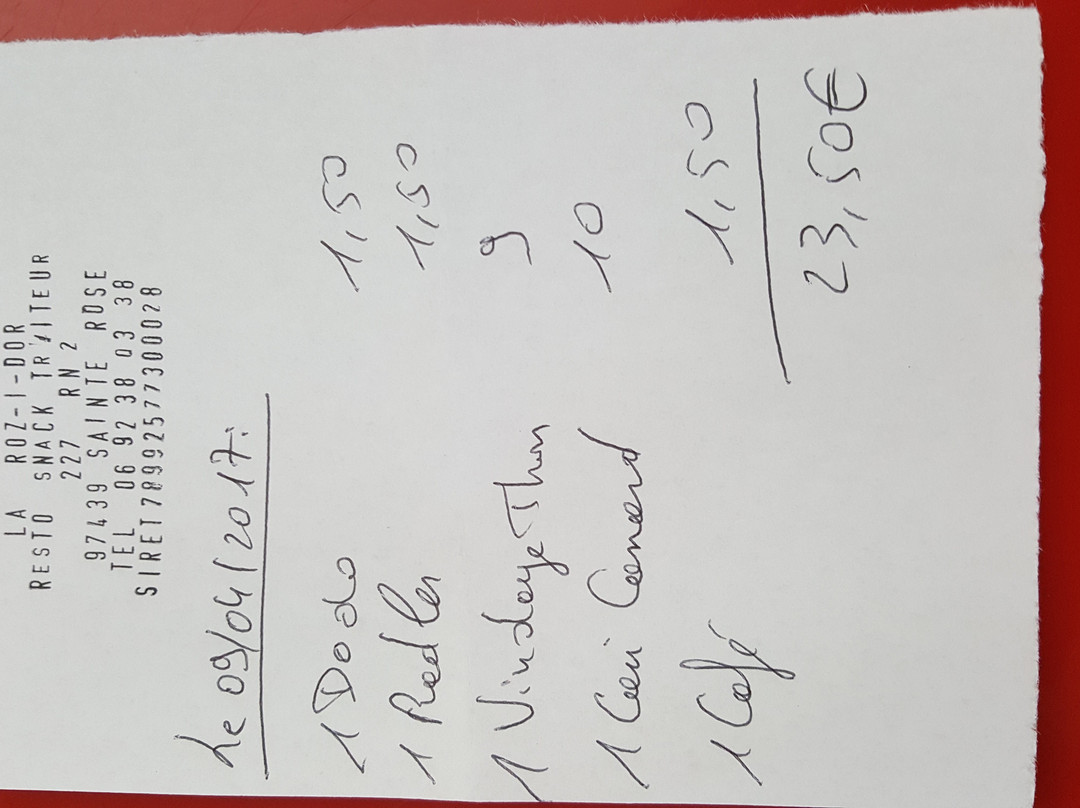 LA ROZ-I-DOR
RESTO SNACK TRAITEUR
227 RN 2
97439 SAINTE ROSE
TEL 06 92 38 03 38
SIRET78992577300028
Le 09/04/2017:
1 Dodo 1,50
1 Radler 1,50
1 Vindaye Thon 9
1 Cari Canard 10
1 Café 1,50
23,50€